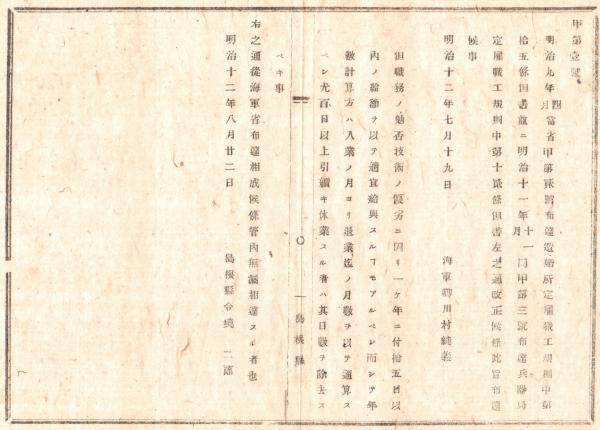 甲第壹號
明治九年四月當省甲第貳號布達造船所定雇職工規則中第
拾五條但書並ニ明治十一年十一月同甲第三號布達兵器局
定雇職工規則中第十貳條但書左之通改正候條此旨布達
候事
明治十二年七月十九日　海軍卿川村純義
但職務ノ勉否技術ノ優劣ニ因リ一ケ年ニ付拾五日以
內ノ給額ヲ以テ適宜給與スルヿモアルベシ而シテ年
數計算方ハ入業ノ月ヨリ退業迄ノ月數ヲ以テ通算ス
ベシ尤百日以上引續キ休業スル者ハ其日數ヲ除去ス
島根縣
ベキ事
右之通從海軍省布達相成候條管內無漏相達スル者也
明治十二年八月廿二日　島根縣令境　二郎